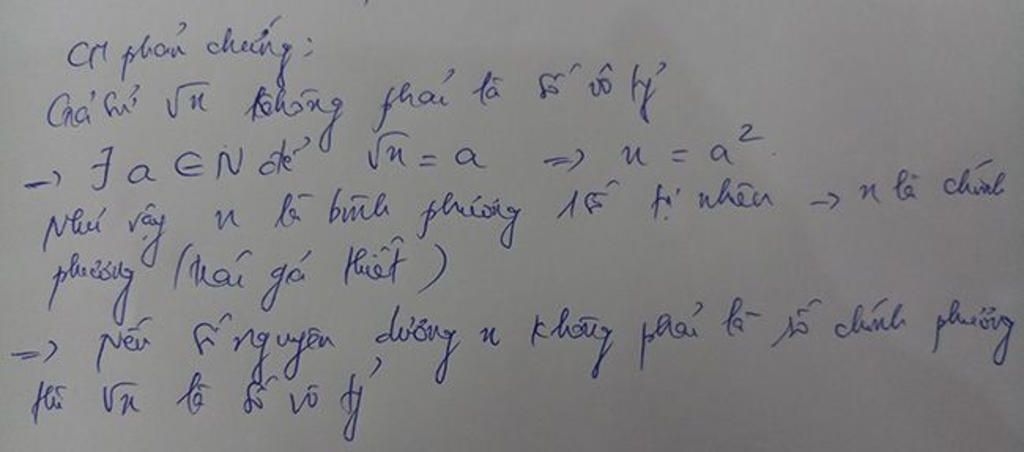 CM phản chứng:
Giả sử √n không phải là số vô tỷ
→ ∃ a ∈ N để √n = a => n = a².
Như vậy n là bình phương 1 số tự nhiên → n là chính
phương (trái giả thiết)
=> Nếu số nguyên dương n không phải là số chính phương
thì √n là số vô tỷ